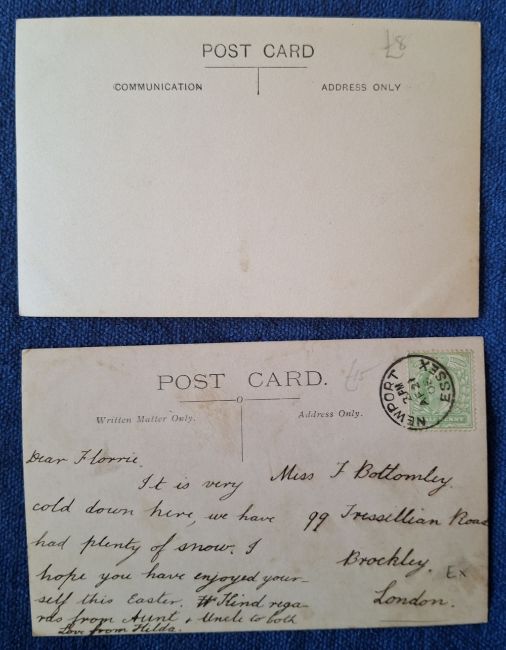 POST CARD
£8
COMMUNICATION
ADDRESS ONLY
POST CARD.
£15
Written Matter Only.
Address Only.
NEWPORT
ESSEX
2 PM
AP 21
PENNY
Dear Florrie.
It is very
cold down here, we have
had plenty of snow. I
hope you have enjoyed your-
self this Easter. Kind rega-
rds from Aunt & Uncle to both
Love from Hilda.
Miss F Bottomley.
99 Tressillian Road
Brockley.
London.
Ex